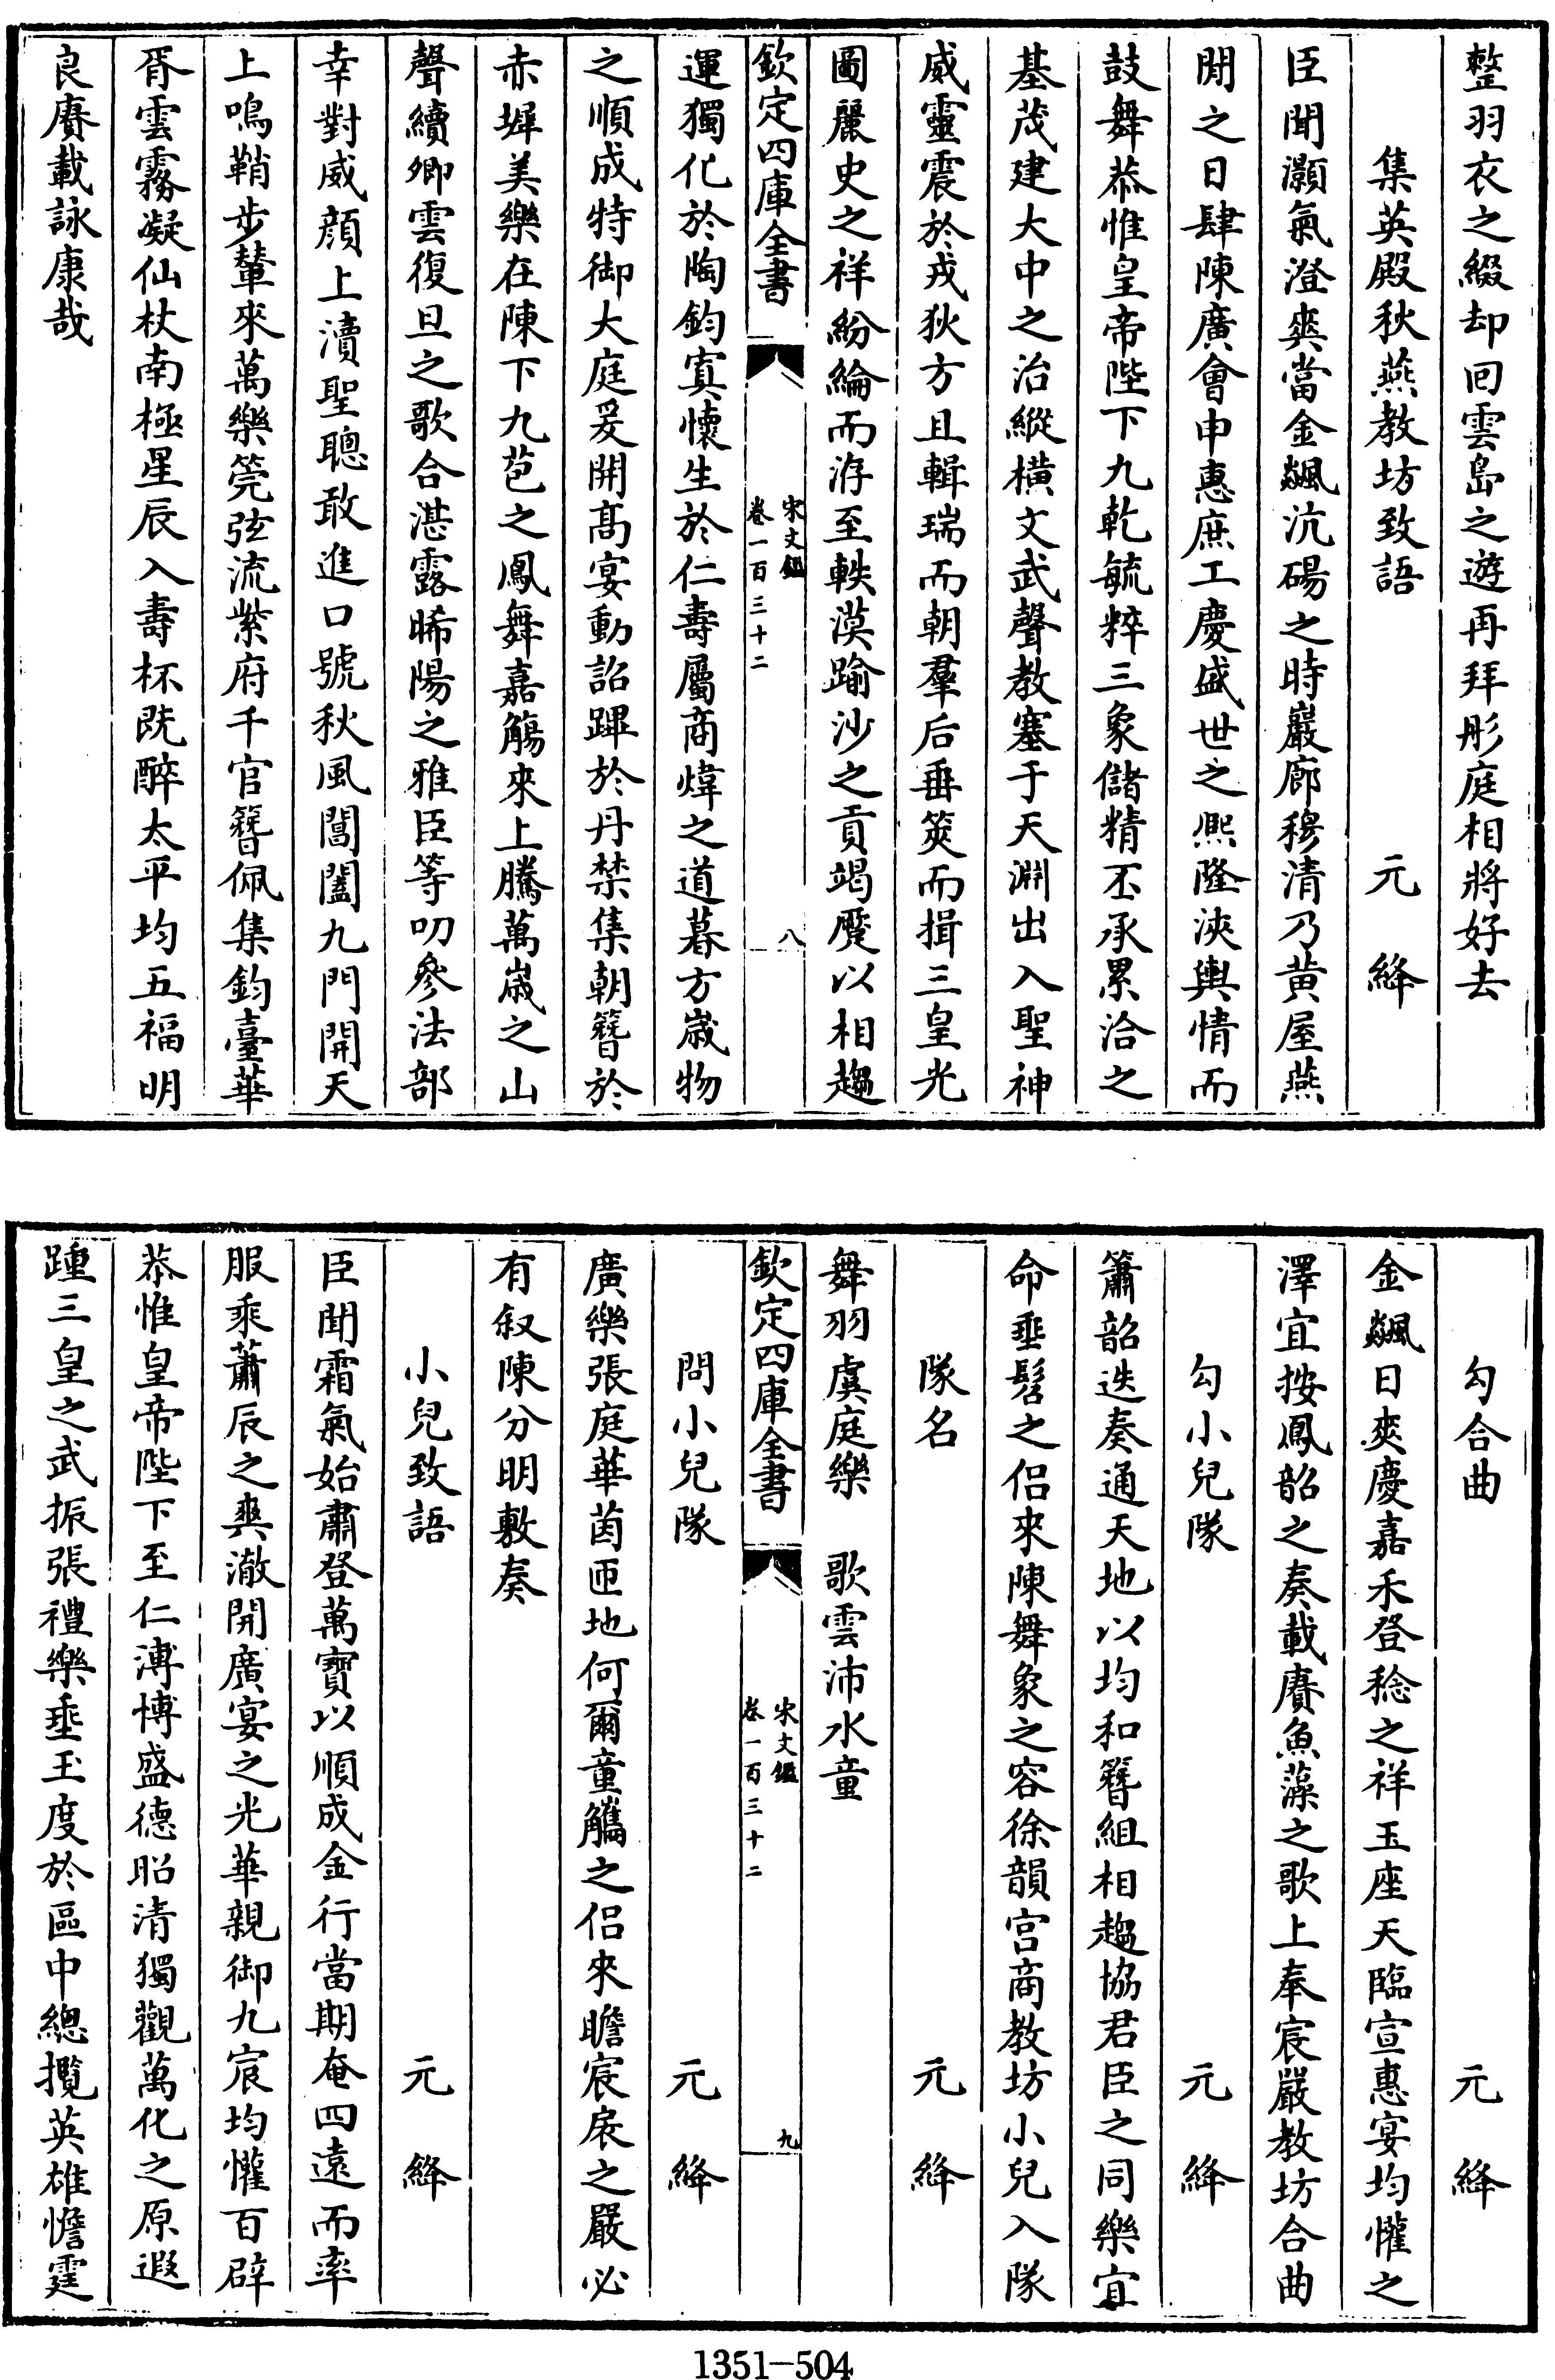 整羽衣之綴却回雲島之遊再拜彤庭相將好去
集英殿秋燕教坊致語 元絳
臣聞灝氣澄爽當金飈沆碭之時巖廊穆清乃黄屋燕
閒之日肆陳廣會申惠庶工慶盛世之熙隆浹輿情而
鼓舞恭惟皇帝陛下九乾毓粹三象儲精丕承累洽之
基茂建大中之治縱横文武聲教塞于天淵出入聖神
威靈震於戎狄方且輯瑞而朝羣后垂筴而揖三皇光
圖麗史之祥紛綸而洊至軼漠踰沙之貢竭蹷以相趨
欽定四庫全書 宋文鑑 卷一百三十二 八
運獨化於陶鈞寘懷生於仁壽屬商煒之道暮方嵗物
之順成特御大庭爰開髙宴動詔蹕於丹禁集朝簪於
赤墀美樂在陳下九苞之鳳舞嘉觴來上騰萬嵗之山
聲續卿雲復旦之歌合湛露晞陽之雅臣等叨參法部
幸對威顔上瀆聖聰敢進口號秋風閶闔九門開天
上鳴鞘步輦來萬樂筦弦流紫府千官簪佩集鈞臺華
胥雲霧凝仙杖南極星辰入壽杯既醉太平均五福明
良賡載詠康哉
勾合曲 元絳
金飈日爽慶嘉禾登稔之祥玉座天臨宣惠宴均懽之
澤宜按鳳韶之奏載賡魚藻之歌上奉宸嚴教坊合曲
勾小兒隊 元絳
簫韶迭奏通天地以均和簪組相趨協君臣之同樂宜
命垂髫之侣來陳舞象之容徐韻宫商教坊小兒入隊
隊名 元絳
舞羽虞庭樂 歌雲沛水童
欽定四庫全書 宋文鑑 卷一百三十二 九
問小兒隊 元絳
廣樂張庭華茵匝地何爾童觿之侣來瞻宸扆之嚴必
有叙陳分明敷奏
小兒致語 元絳
臣聞霜氣始肅登萬寳以順成金行當期奄四遠而率
服乘蕭辰之爽澈開廣宴之光華親御九宸均懽百辟
恭惟皇帝陛下至仁溥博盛德昭清獨觀萬化之原遐
踵三皇之武振張禮樂垂玉度於區中總攬英雄憺霆
1351-504